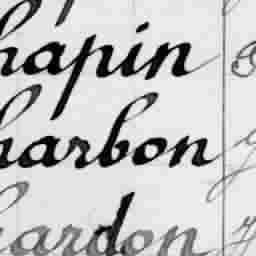 hapin
harbon
hardon